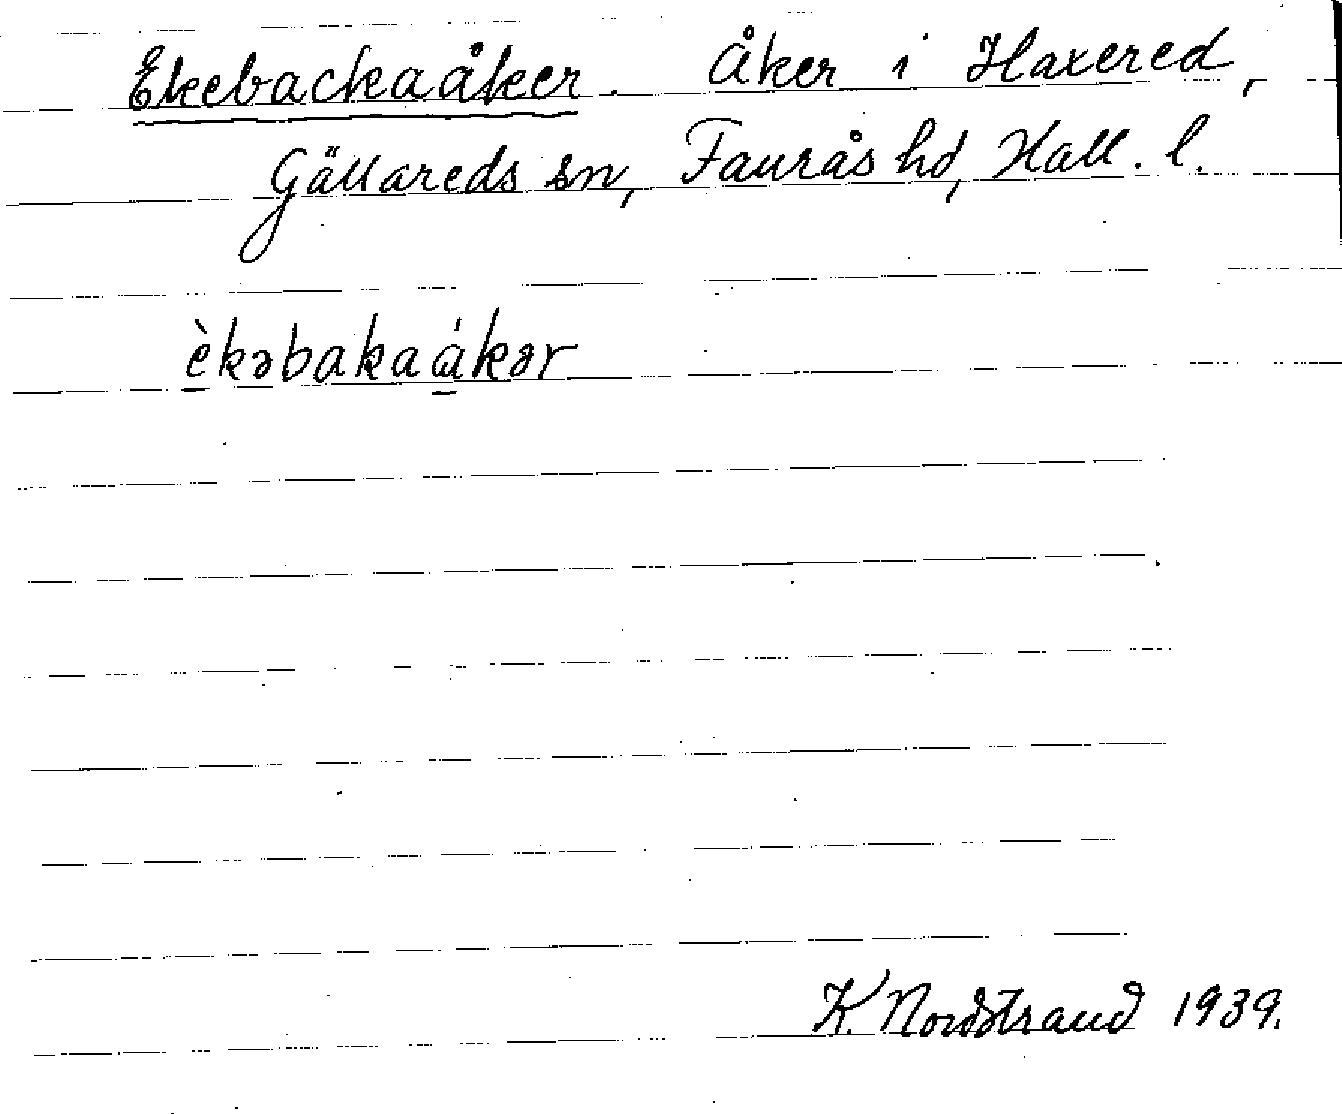 Ekebackaåker. Åker i Haxered,
Gällareds sn, Faurås hd, Hall. l.
èkəbakaákər
K. Nordstrand 1939.